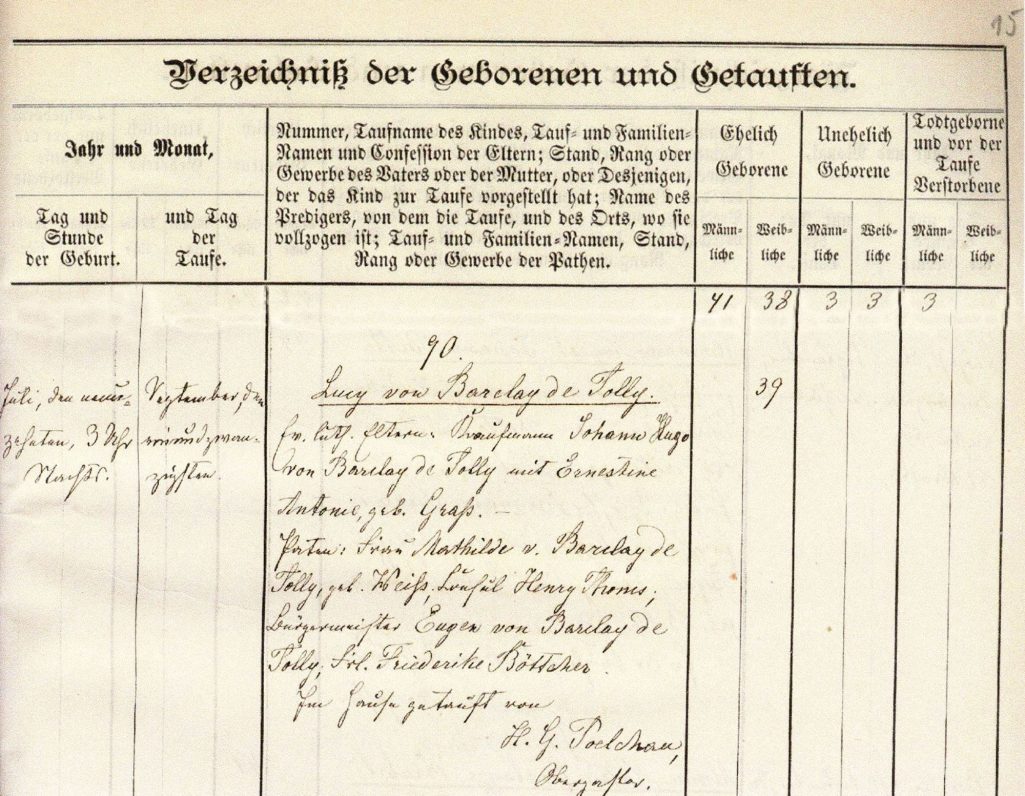 15
Verzeichniß der Geborenen und Getauften.
Jahr und Monat,
Tag und
Stunde
der Geburt.
und Tag
der
Taufe.
Nummer, Taufname des Kindes, Tauf- und Familien-
Namen und Confession der Eltern; Stand, Rang oder
Gewerbe des Vaters oder der Mutter, oder Desjenigen,
der das Kind zur Taufe vorgestellt hat; Name des
Predigers, von dem die Taufe, und des Orts, wo sie
vollzogen ist; Tauf- und Familien-Namen, Stand,
Rang oder Gewerbe der Pathen.
Ehelich
Geborene
Unehelich
Geborene
Todtgeborne
und vor der
Taufe
Verstorbene
Männ-
liche
Weib-
liche
Männ-
liche
Weib-
liche
Männ-
liche
Weib-
liche
41 38 3 3 3
90.
Juli, den neun-
zehnten, 3 Uhr
Nachts.
September, den
einundzwan-
zigsten.
Lucy von Barclay de Tolly. 39
Ev. luth. Eltern: Kaufmann Johann Hugo
von Barclay de Tolly mit Ernestine
Antonie, geb. Graß. –
Paten: Frau Mathilde v. Barclay de
Tolly, geb. Weiss, Consul Henry Thoms,
Bürgermeister Eugen von Barclay de
Tolly, Frl. Friederike Böttcher.
Im Hause getauft von
H. G. Poelchau,
Oberpastor.